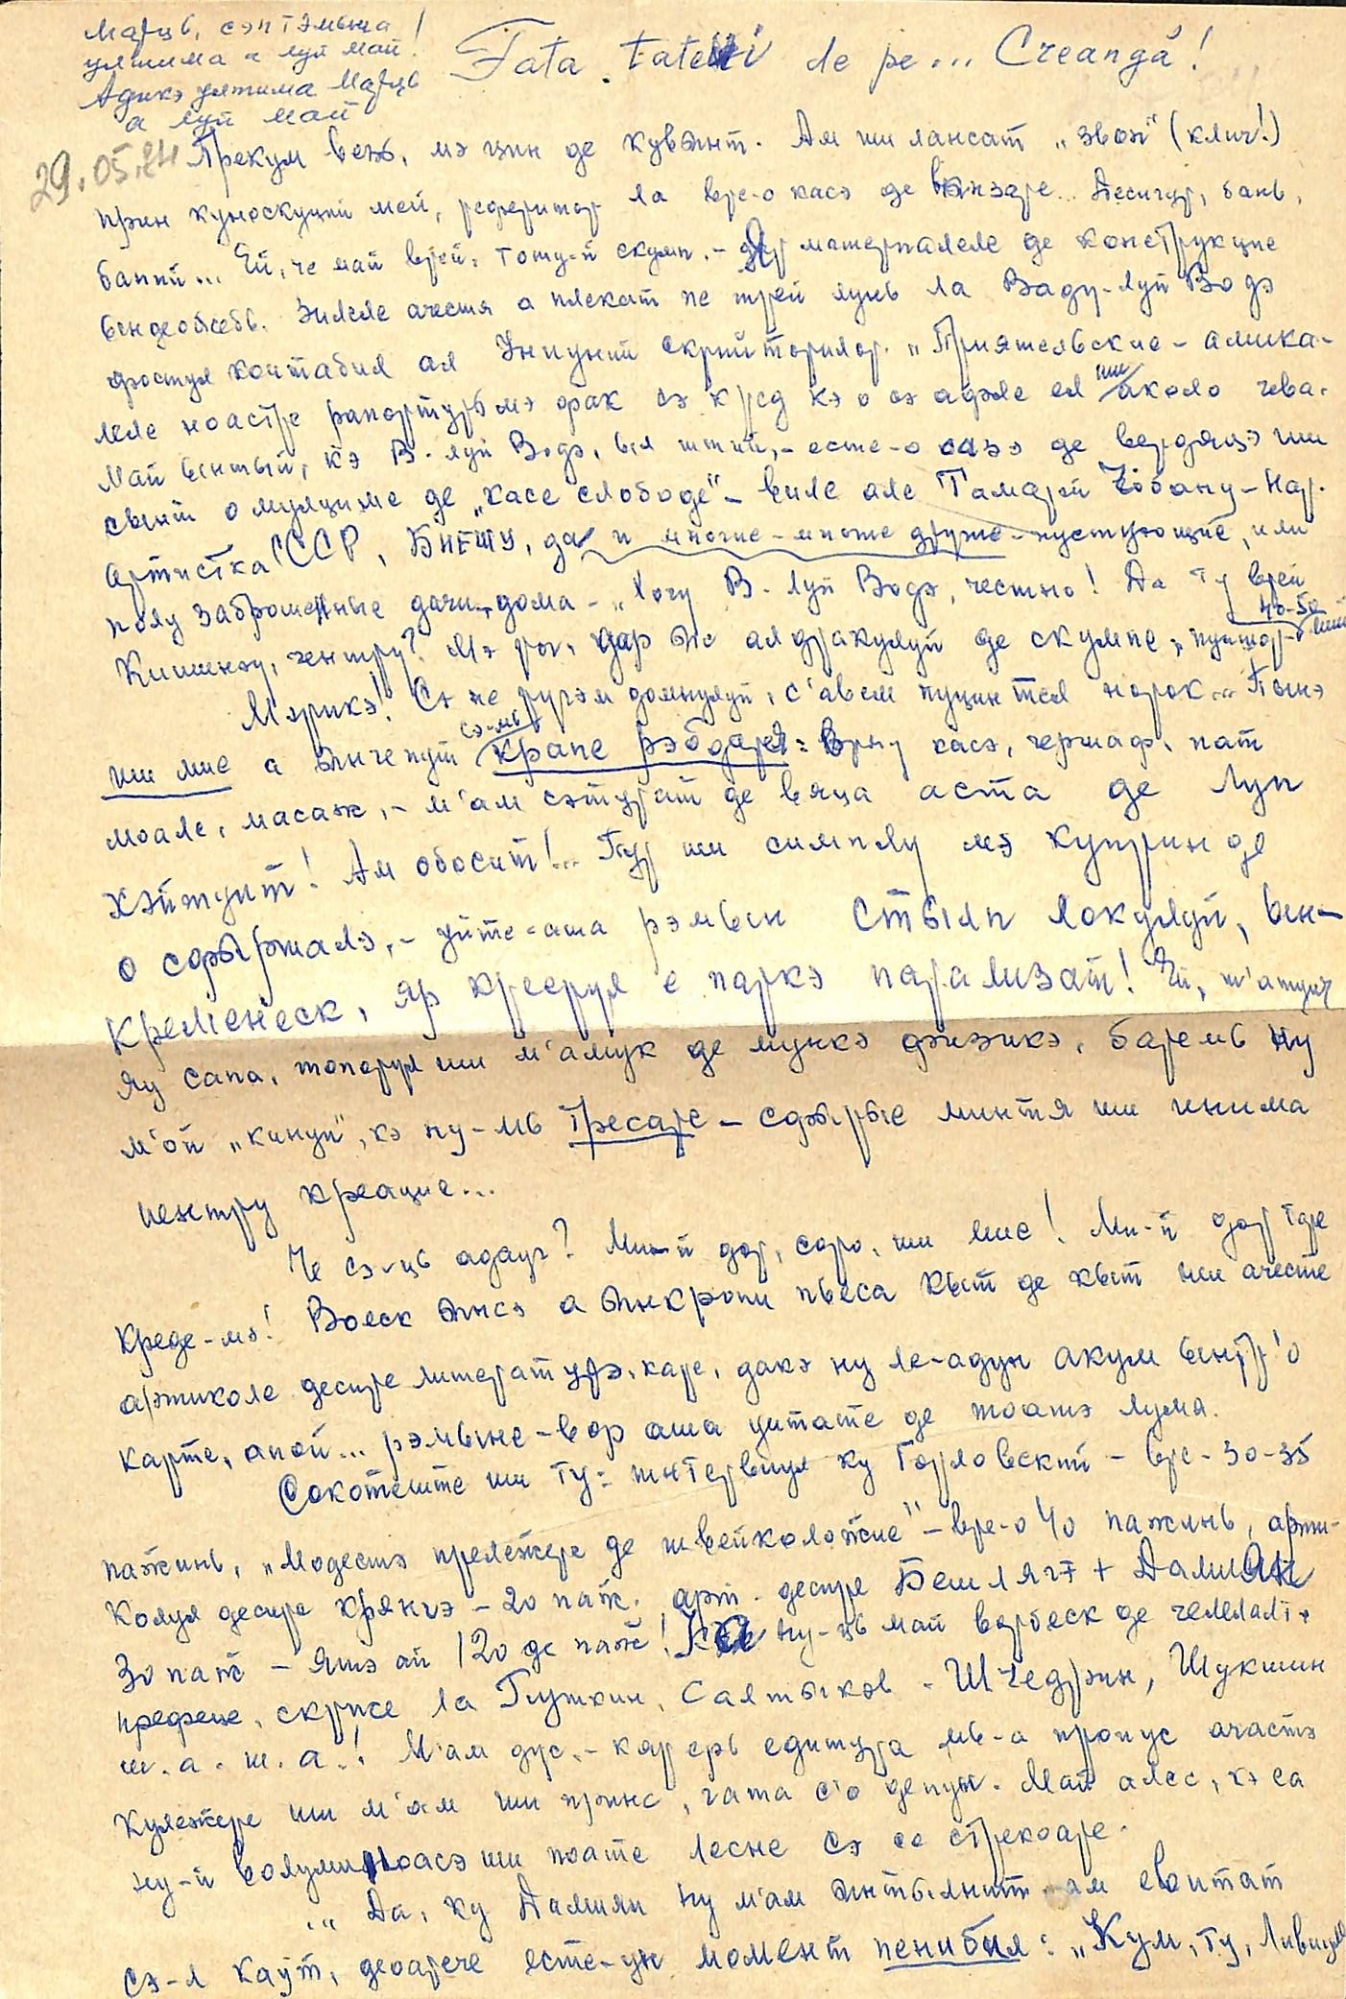 Марць, сэптэмына
ултима а луй май!
Адикэ ултима Марць
а луй май
Fata tatei de pe... Creangă!
29.05.84
Прекум везь, мэ цин де кувынт. Ам ши лансат „звон" (клич!)
прин куноскуций мей, реферитор ла вре-о касэ де вынзаре... Десигур, бань,
баний... Ей, че май врей: тоту-й скумп. - Яр материалеле де конструкцие
ындеосебь. Зилеле ачестя а плекат пе трей лунь ла Ваду-луй Водэ
фостул контабил ал Униуний скрииторилор. „Приятельские - амика-
леле ноастре рапортурь мэ фак сэ кред кэ о сэ афле ел ши аколо чева.
Май ынтый, кэ В. луй Водэ, ыл штий, - есте-о оазэ де вердяцэ ши
сынт о мулциме де „касе слободе" - виле але Тамарей Чобану - Нар.
артистка СССР, Биешу, да и многие-многие другие - пустующие, или
полу заброшенные дачи-дома - „Хочу В. луй Водэ, честно! Да ту врей
Кишинэу, чентру? Мэ рог, дар ый ал дракулуй де скумпе, пуцтор 40-50 мий
Мэрикэ! Сэ не ругэм домнулуй, с'авем пуцинтел норок... Пынэ
ши мие а ынчепут сэ-мь крапе рэбдаря: Вряу касэ, чершаф, пат
моале, масаж, - м'ам сэтурат де вяца аста де Луп
хэйтуит! Ам обосит!... Пур ши симплу мэ куприн де
о сфыршалэ, - уйте-аша рэмын стылп локулуй, ын-
кремене́ск, яр креерул е паркэ парализат! Ей, м'апуч
яу сапа, топорул ши м'апук де мункэ физикэ, баремь ну
м'ой „кинуи", кэ ну-мь тресаре - сфырые минтя ши инима
пентру креацие...
Че сэ-ць адауг? Ми-й дор, соро, ши мие! Ми-й дор таре
креде-мэ! Воеск ынсэ а ынкропи пьеса кыт де кыт ши ачесте
артиколе деспре литературэ, каре, дакэ ну ле-адун акум ынтр'о
карте, апой... рэмыне-вор аша уитате де тоатэ лумя.
Сокотеште ши ту: интервиул ку Горловский - вре-30-35
пажинь, „Модестэ прележере де швейколожие" - вре-о 40 пажинь, арти-
колул деспре Крянгэ - 20 паж. арт. деспре Бешлягэ + Дамиан
30 паж - ятэ ай 120 де паж! Ка ну-ць май ворбеск де челелалте
префеце, скрисе ла Пушкин, Салтыков-Шчедрин, Шукшин
ш. а. ш. а.! М'ам дус, - кяр ерь едитура мь-а пропус ачастэ
кулежере ши м'ам ши принс, гата с'о депун. Май алес, кэ еа
ну-й волуминоасэ ши поате лесне сэ се стрекоаре.
... Да, ку Дамиан ну м'ам ынтылнит - ам евитат
сэ-л каут, деоарече есте-ун момент пенибил: „Кум, ту, Ливиу